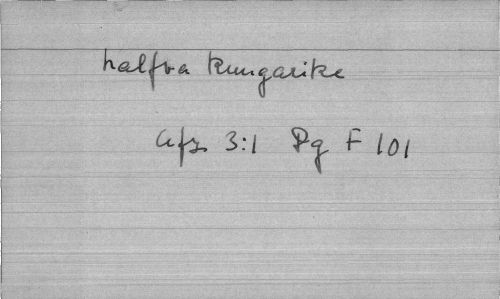 halfva kungarike
Afz 3:1 Pg F 101